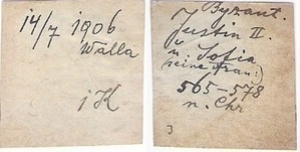 14/7 1906
Wälla
j K
Byzant.
Justin II.
u. Sofia
(seine Frau:)
565–578
n. Chr
3